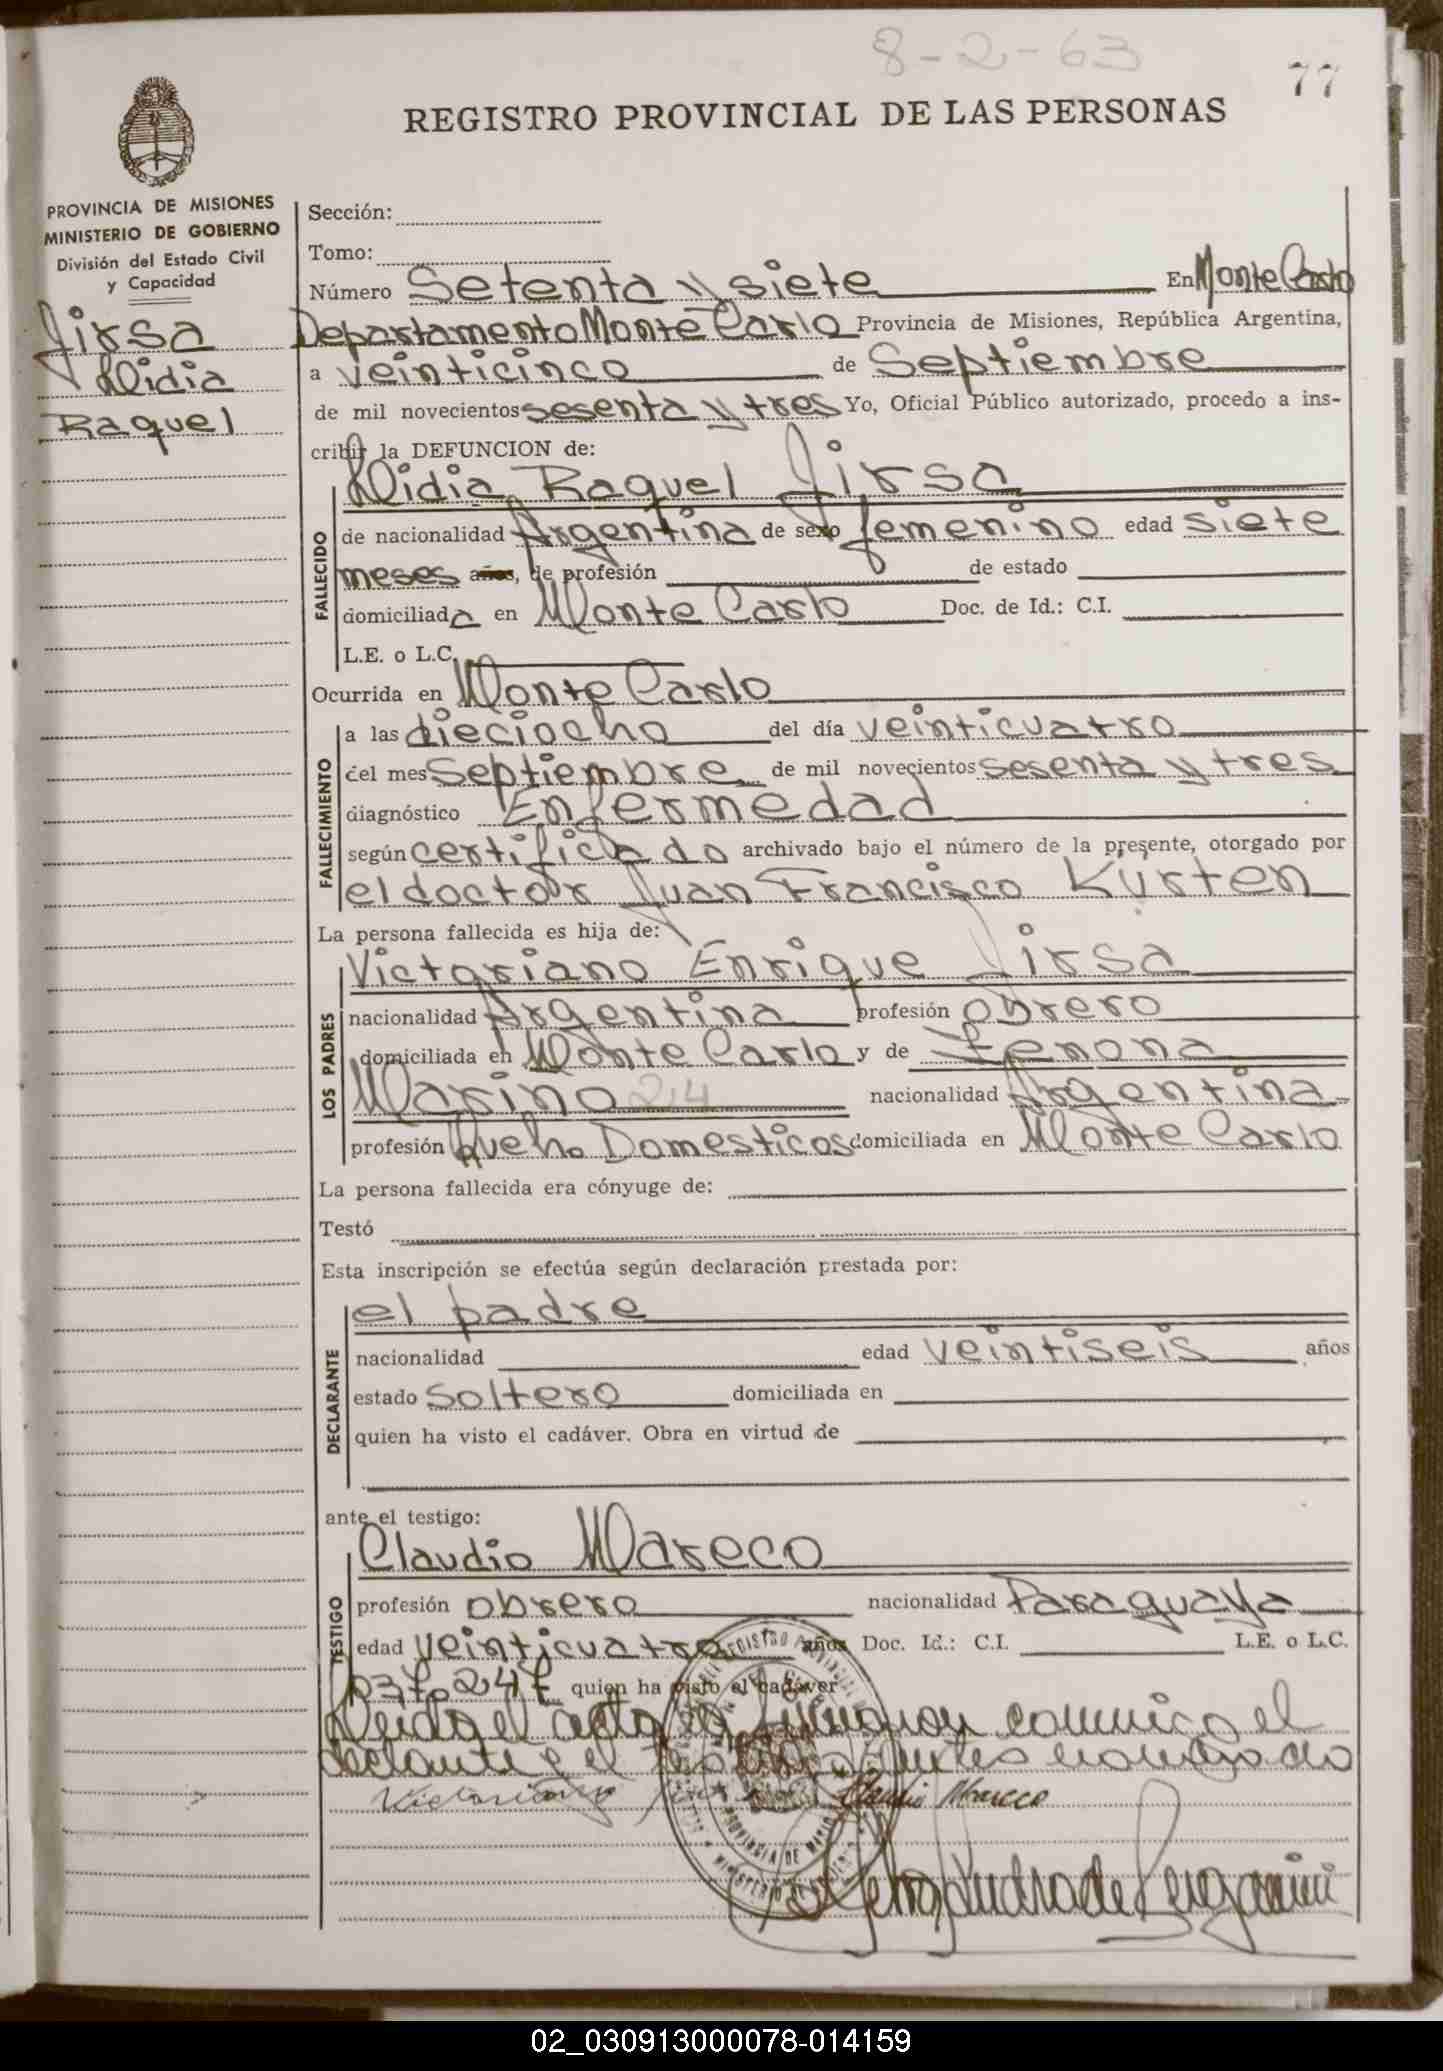 8-2-63
77
REGISTRO PROVINCIAL DE LAS PERSONAS
PROVINCIA DE MISIONES
MINISTERIO DE GOBIERNO
División del Estado Civil
y Capacidad
Jirsa
Lidia
Raquel
Sección:
Tomo:
Número Setenta y siete En Monte Carlo
Departamento Monte Carlo Provincia de Misiones, República Argentina,
a veinticinco de Septiembre
de mil novecientos sesenta y tres Yo, Oficial Público autorizado, procedo a ins-
cribir la DEFUNCION de:
Lidia Raquel Jirsa
FALLECIDO
de nacionalidad Argentina de sexo femenino edad siete
meses años, de profesión de estado
domiciliada en Monte Carlo Doc. de Id.: C.I.
L.E. o L.C.
Ocurrida en Monte Carlo
FALLECIMIENTO
a las dieciocho del día veinticuatro
del mes Septiembre de mil novecientos sesenta y tres
diagnóstico Enfermedad
según certificado archivado bajo el número de la presente, otorgado por
el doctor Juan Francisco Kürten
La persona fallecida es hija de:
LOS PADRES
Victoriano Enrique Jirsa
nacionalidad Argentina profesión obrero
domiciliada en Monte Carlo y de Zenona
Marino 24 nacionalidad Argentina
profesión Queha Domesticos domiciliada en Monte Carlo
La persona fallecida era cónyuge de:
Testó
Esta inscripción se efectúa según declaración prestada por:
DECLARANTE
el padre
nacionalidad edad veintiseis años
estado soltero domiciliada en
quien ha visto el cadáver. Obra en virtud de
ante el testigo:
TESTIGO
Claudio Mareco
profesión obrero nacionalidad Paraguaya
edad veinticuatro años Doc. Id.: C.I. L.E. o L.C.
quien ha visto el cadáver
Leida el acta la firman conmigo el
declarante e el testigo
Victoriano Claudio Mareco
02_030913000078-014159